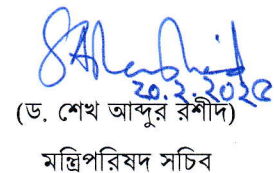 ২০.২.২০২৫
(ড. শেখ আব্দুর রশীদ)
মন্ত্রিপরিষদ সচিব